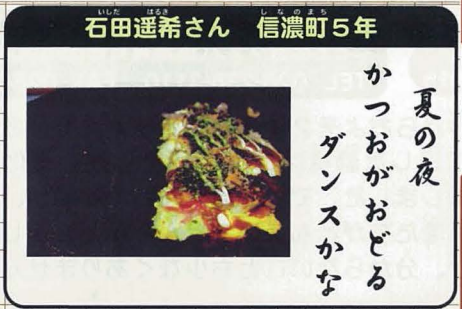 石田遥希さん 信濃町5年
いしだ はるき しなのまち
夏の夜
かつおがおどる
ダンスかな